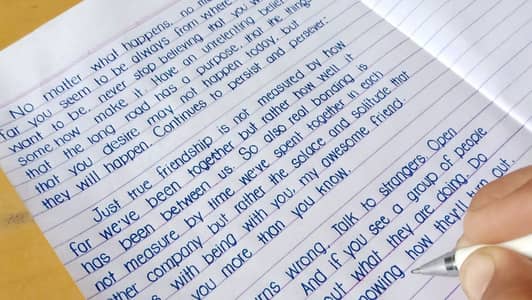 No matter what happens, no
far you seem to be always from where
want to be, never stop believing that you
some how make it. Have an unrelenting belief
that the long road has a purpose, that the things
that you desire may not happen today, but
they will happen. Continues to persist and persever:
Just true friendship is not measured by how
far we've been together but rather how well it
has been between us. So also real bonding is
not measure by time we've spent together in each
ther company but rather the solace and solitude that
s with being with you, my awesome friend.
you more than you know.
rns wrong. Talk to strangers. Open
And if you see a group of people
out what they are doing. Do
nowing how they'll turn out.